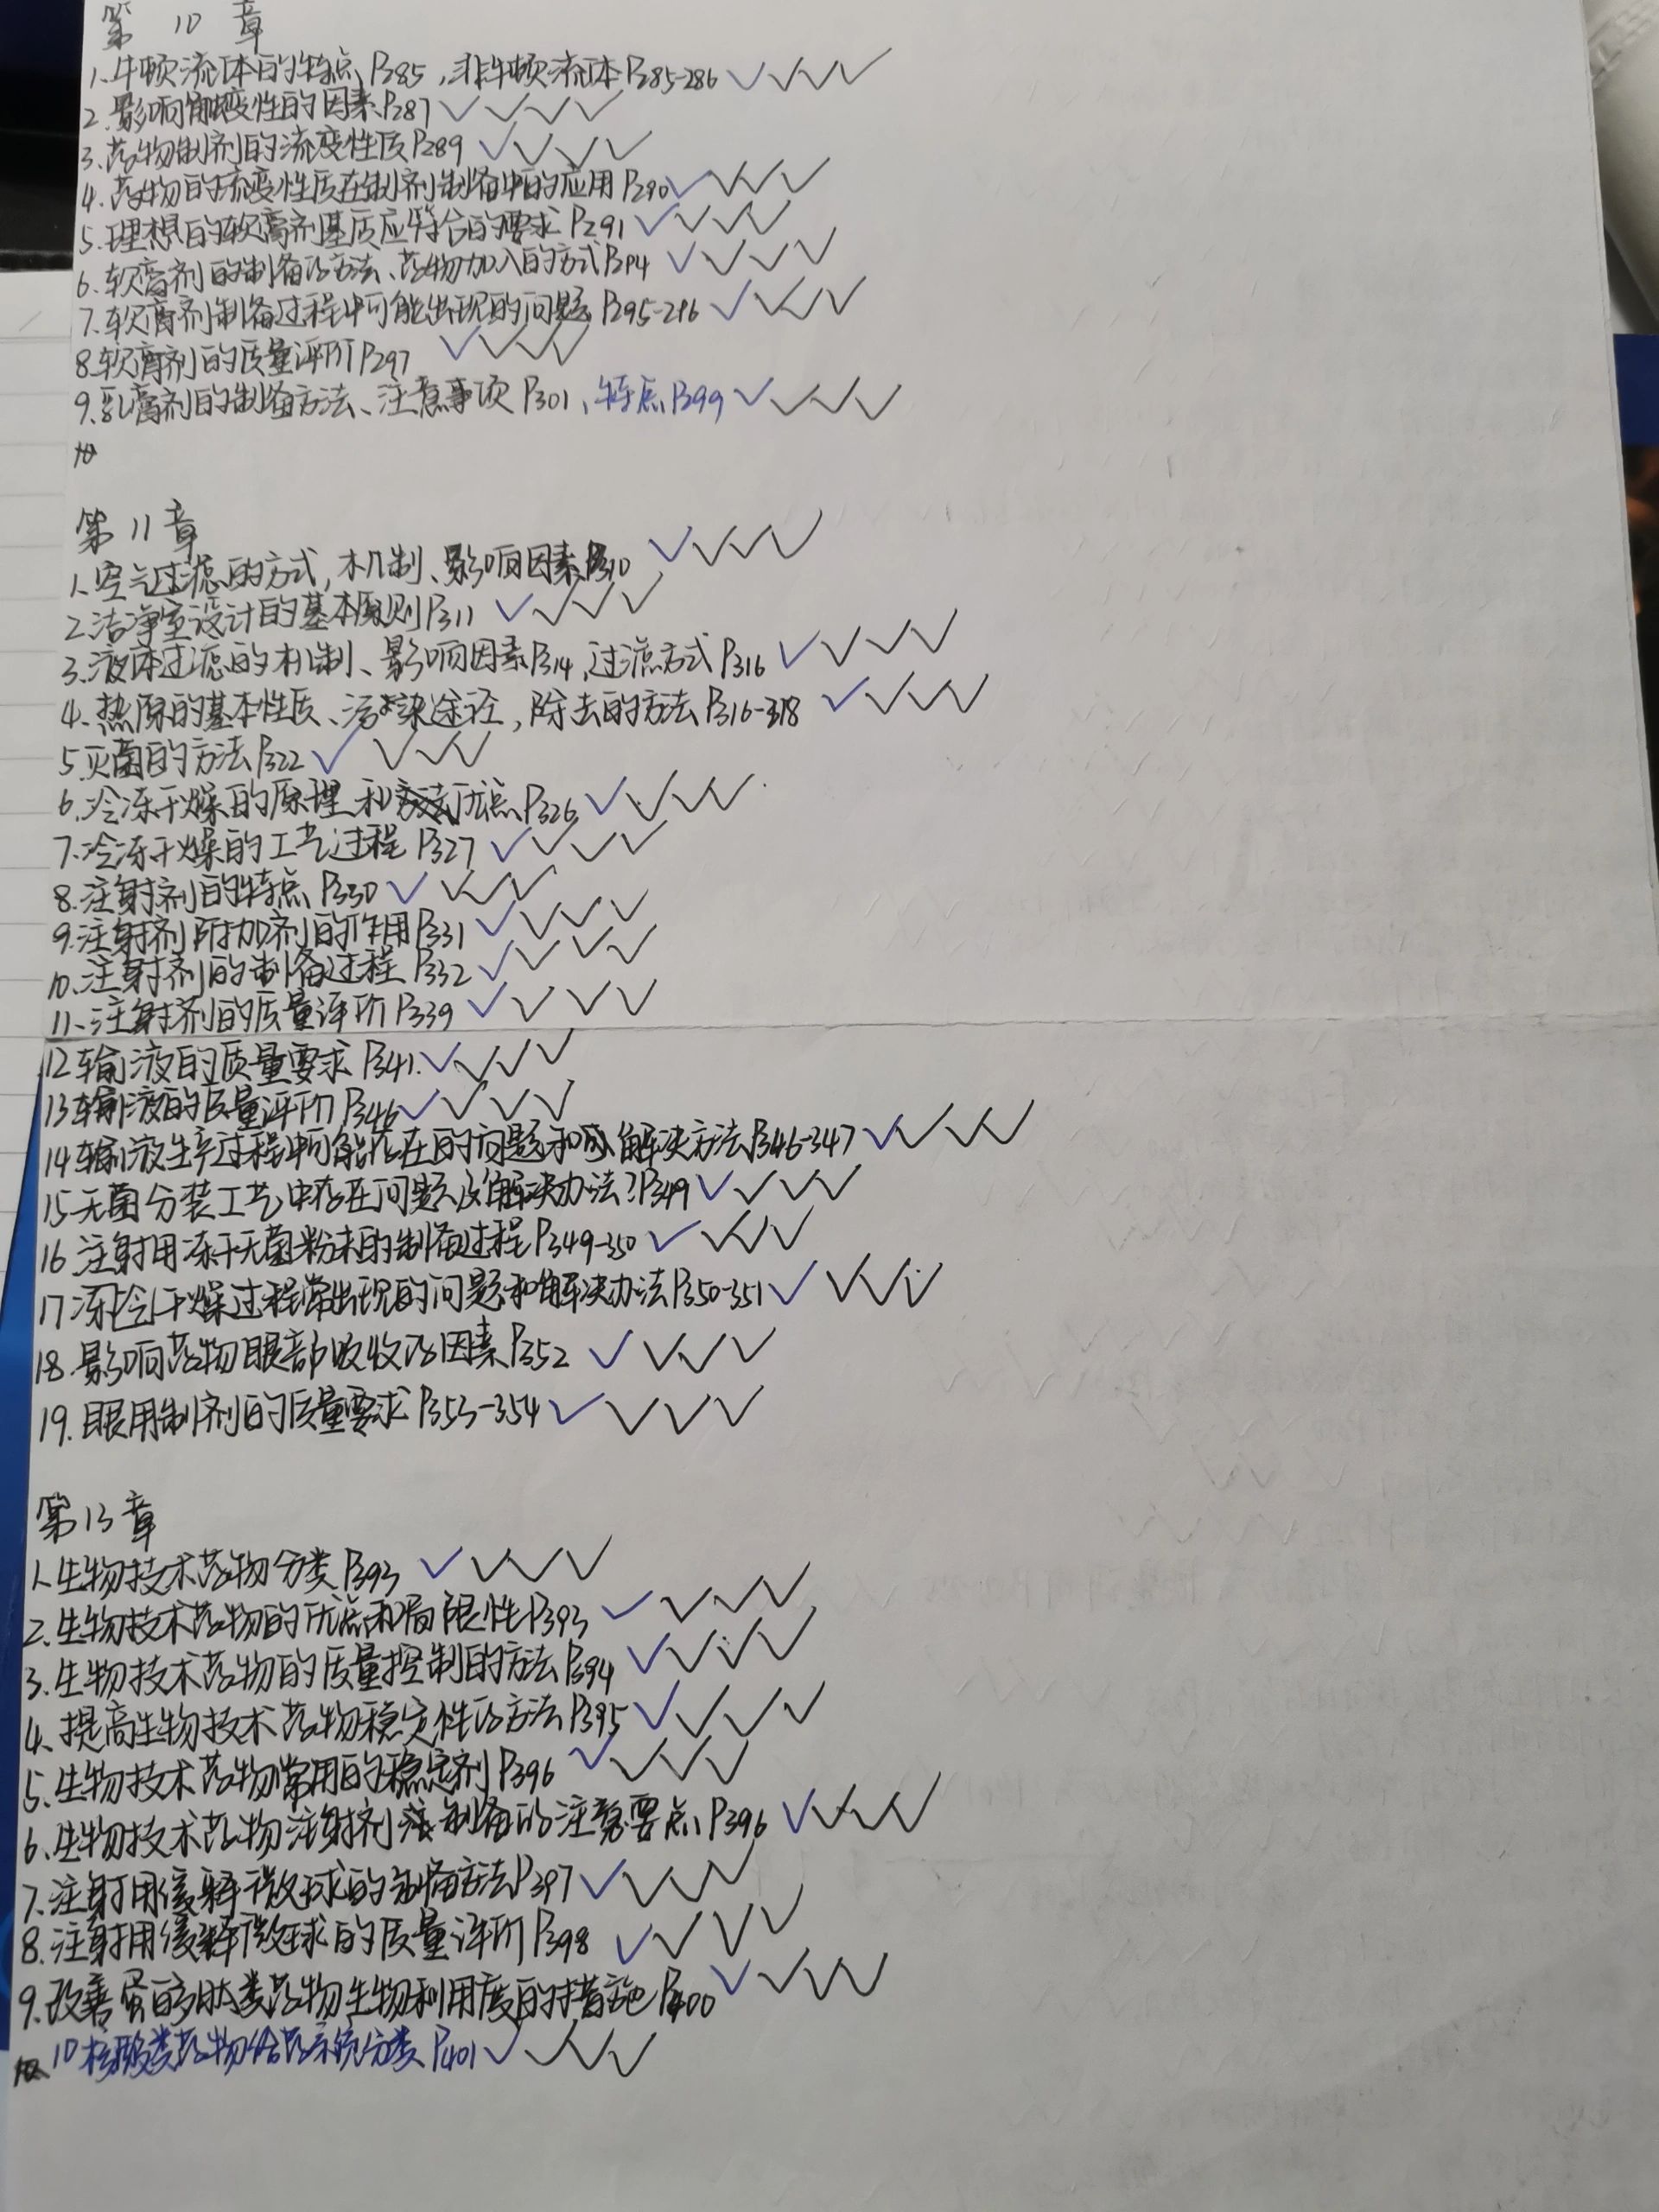 第10章
1.牛顿流体的特点P285,非牛顿流体P285-286✓✓✓✓
2.影响触变性的因素P287✓✓✓✓
3.药物制剂的流变性质P289✓✓✓✓
4.药物的流变性质在制剂制备中的应用P290✓✓✓✓
5.理想的软膏剂基质应符合的要求P291✓✓✓✓
6.软膏剂的制备的方法、药物加入的方式P294✓✓✓✓
7.软膏剂制备过程中可能出现的问题P295-296✓✓✓✓
8.软膏剂的质量评价P297✓✓✓✓
9.乳膏剂的制备方法、注意事项P301、特点P299✓✓✓✓
第11章
1.空气过滤的方式,机制、影响因素P310✓✓✓✓
2.洁净室设计的基本原则P311✓✓✓✓
3.液体过滤的机制、影响因素P314,过滤方式P316✓✓✓✓
4.热原的基本性质、污染途径,除去的方法P316-318✓✓✓✓
5.灭菌的方法P322✓✓✓✓
6.冷冻干燥的原理和优点P326✓✓✓✓
7.冷冻干燥的工艺过程P327✓✓✓✓
8.注射剂的特点P330✓✓✓✓
9.注射剂附加剂的作用P331✓✓✓✓
10.注射剂的制备过程P332✓✓✓✓
11.注射剂的质量评价P339✓✓✓✓
12输液的质量要求P341.✓✓✓✓
13输液的质量评价P346✓✓✓✓
14输液生产过程中可能存在的问题和解决方法P346-347✓✓✓✓
15无菌分装工艺中存在问题及解决办法?P349✓✓✓✓
16注射用冻干无菌粉末的制备过程P349-350✓✓✓✓
17冻冷干燥过程常出现的问题和解决办法P350-351✓✓✓✓
18.影响药物眼部吸收的因素P352✓✓✓✓
19.眼用制剂的质量要求P353-354✓✓✓✓
第13章
1.生物技术药物分类P393✓✓✓✓
2.生物技术药物的优点和局限性P393✓✓✓✓
3.生物技术药物的质量控制的方法P394✓✓✓✓
4.提高生物技术药物稳定性的方法P395✓✓✓✓
5.生物技术药物常用的稳定剂P396✓✓✓✓
6.生物技术药物注射剂制备的注意要点P396✓✓✓✓
7.注射用缓释微球的制备方法P397✓✓✓✓
8.注射用缓释微球的质量评价P398✓✓✓✓
9.改善蛋白多肽类药物生物利用度的措施P400✓✓✓✓
10核酸类药物给药系统分类P401✓✓✓✓